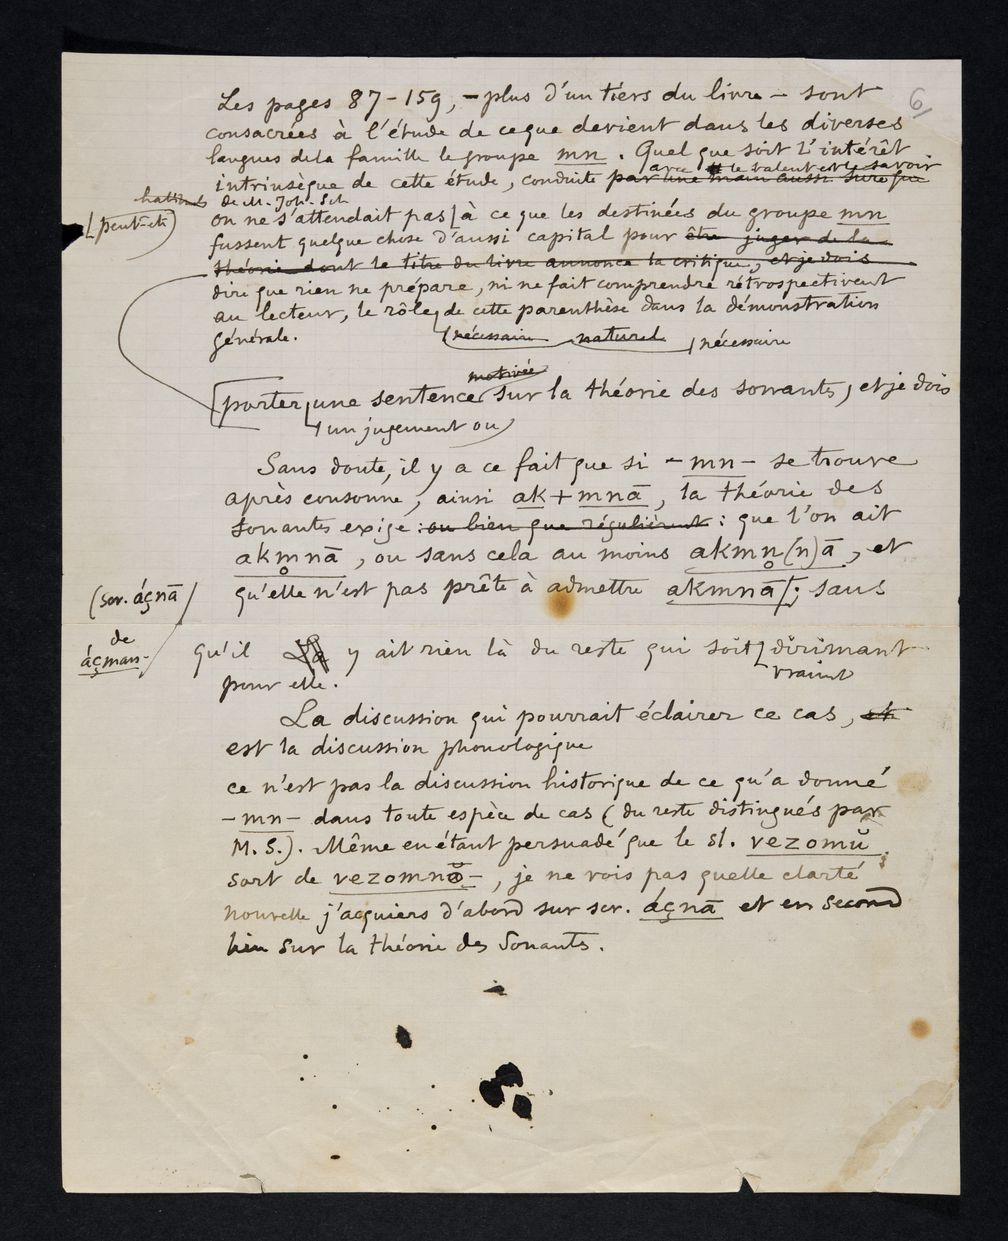 6/
Les pages 87-159, – plus d'un tiers du livre – sont
consacrées à l'étude de ce que devient dans les diverses
langues de la famille le groupe mn. Quel que soit l'intérêt
avec le talent et le savoir
intrinsèque de cette étude, conduite par une main aussi sûre que
de M. Joh. Sch
(peut-êt)
on ne s'attendait pas à ce que les destinées du groupe mn
fussent quelque chose d'aussi capital pour être juger de la
théorie dont le titre du livre annonce la critique, et je dois
dire que rien ne prépare, ni ne fait comprendre rétrospectivement
au lecteur, le rôle de cette parenthèse dans la démonstration
générale.
(nécessaire naturel nécessaire
motivée
porter une sentence sur la théorie des sonantes, et je dois
un jugement ou
Sans doute, il y a ce fait que si -mn- se trouve
après consonne, ainsi ak+mnā, la théorie des
sonantes exige : ou bien que régulièremt : que l'on ait
akm̥nā, ou sans cela au moins akmn̥(n)ā, et
qu'elle n'est pas prête à admettre akmnā; sans
(scr. áçnā
de
áçman-
qu'il y ait rien là du reste qui soit dirimant
vraimt
pour elle.
La discussion qui pourrait éclairer ce cas, et
est la discussion phonologique
ce n'est pas la discussion historique de ce qu'a donné
-mn- dans toute espèce de cas (du reste distingués par
M. S.). Même en étant persuadé que le sl. vezomŭ
sort de vezomnŏ-, je ne vois pas quelle clarté
nouvelle j'acquiers d'abord sur scr. áçnā et en second
lieu sur la théorie des Sonants.